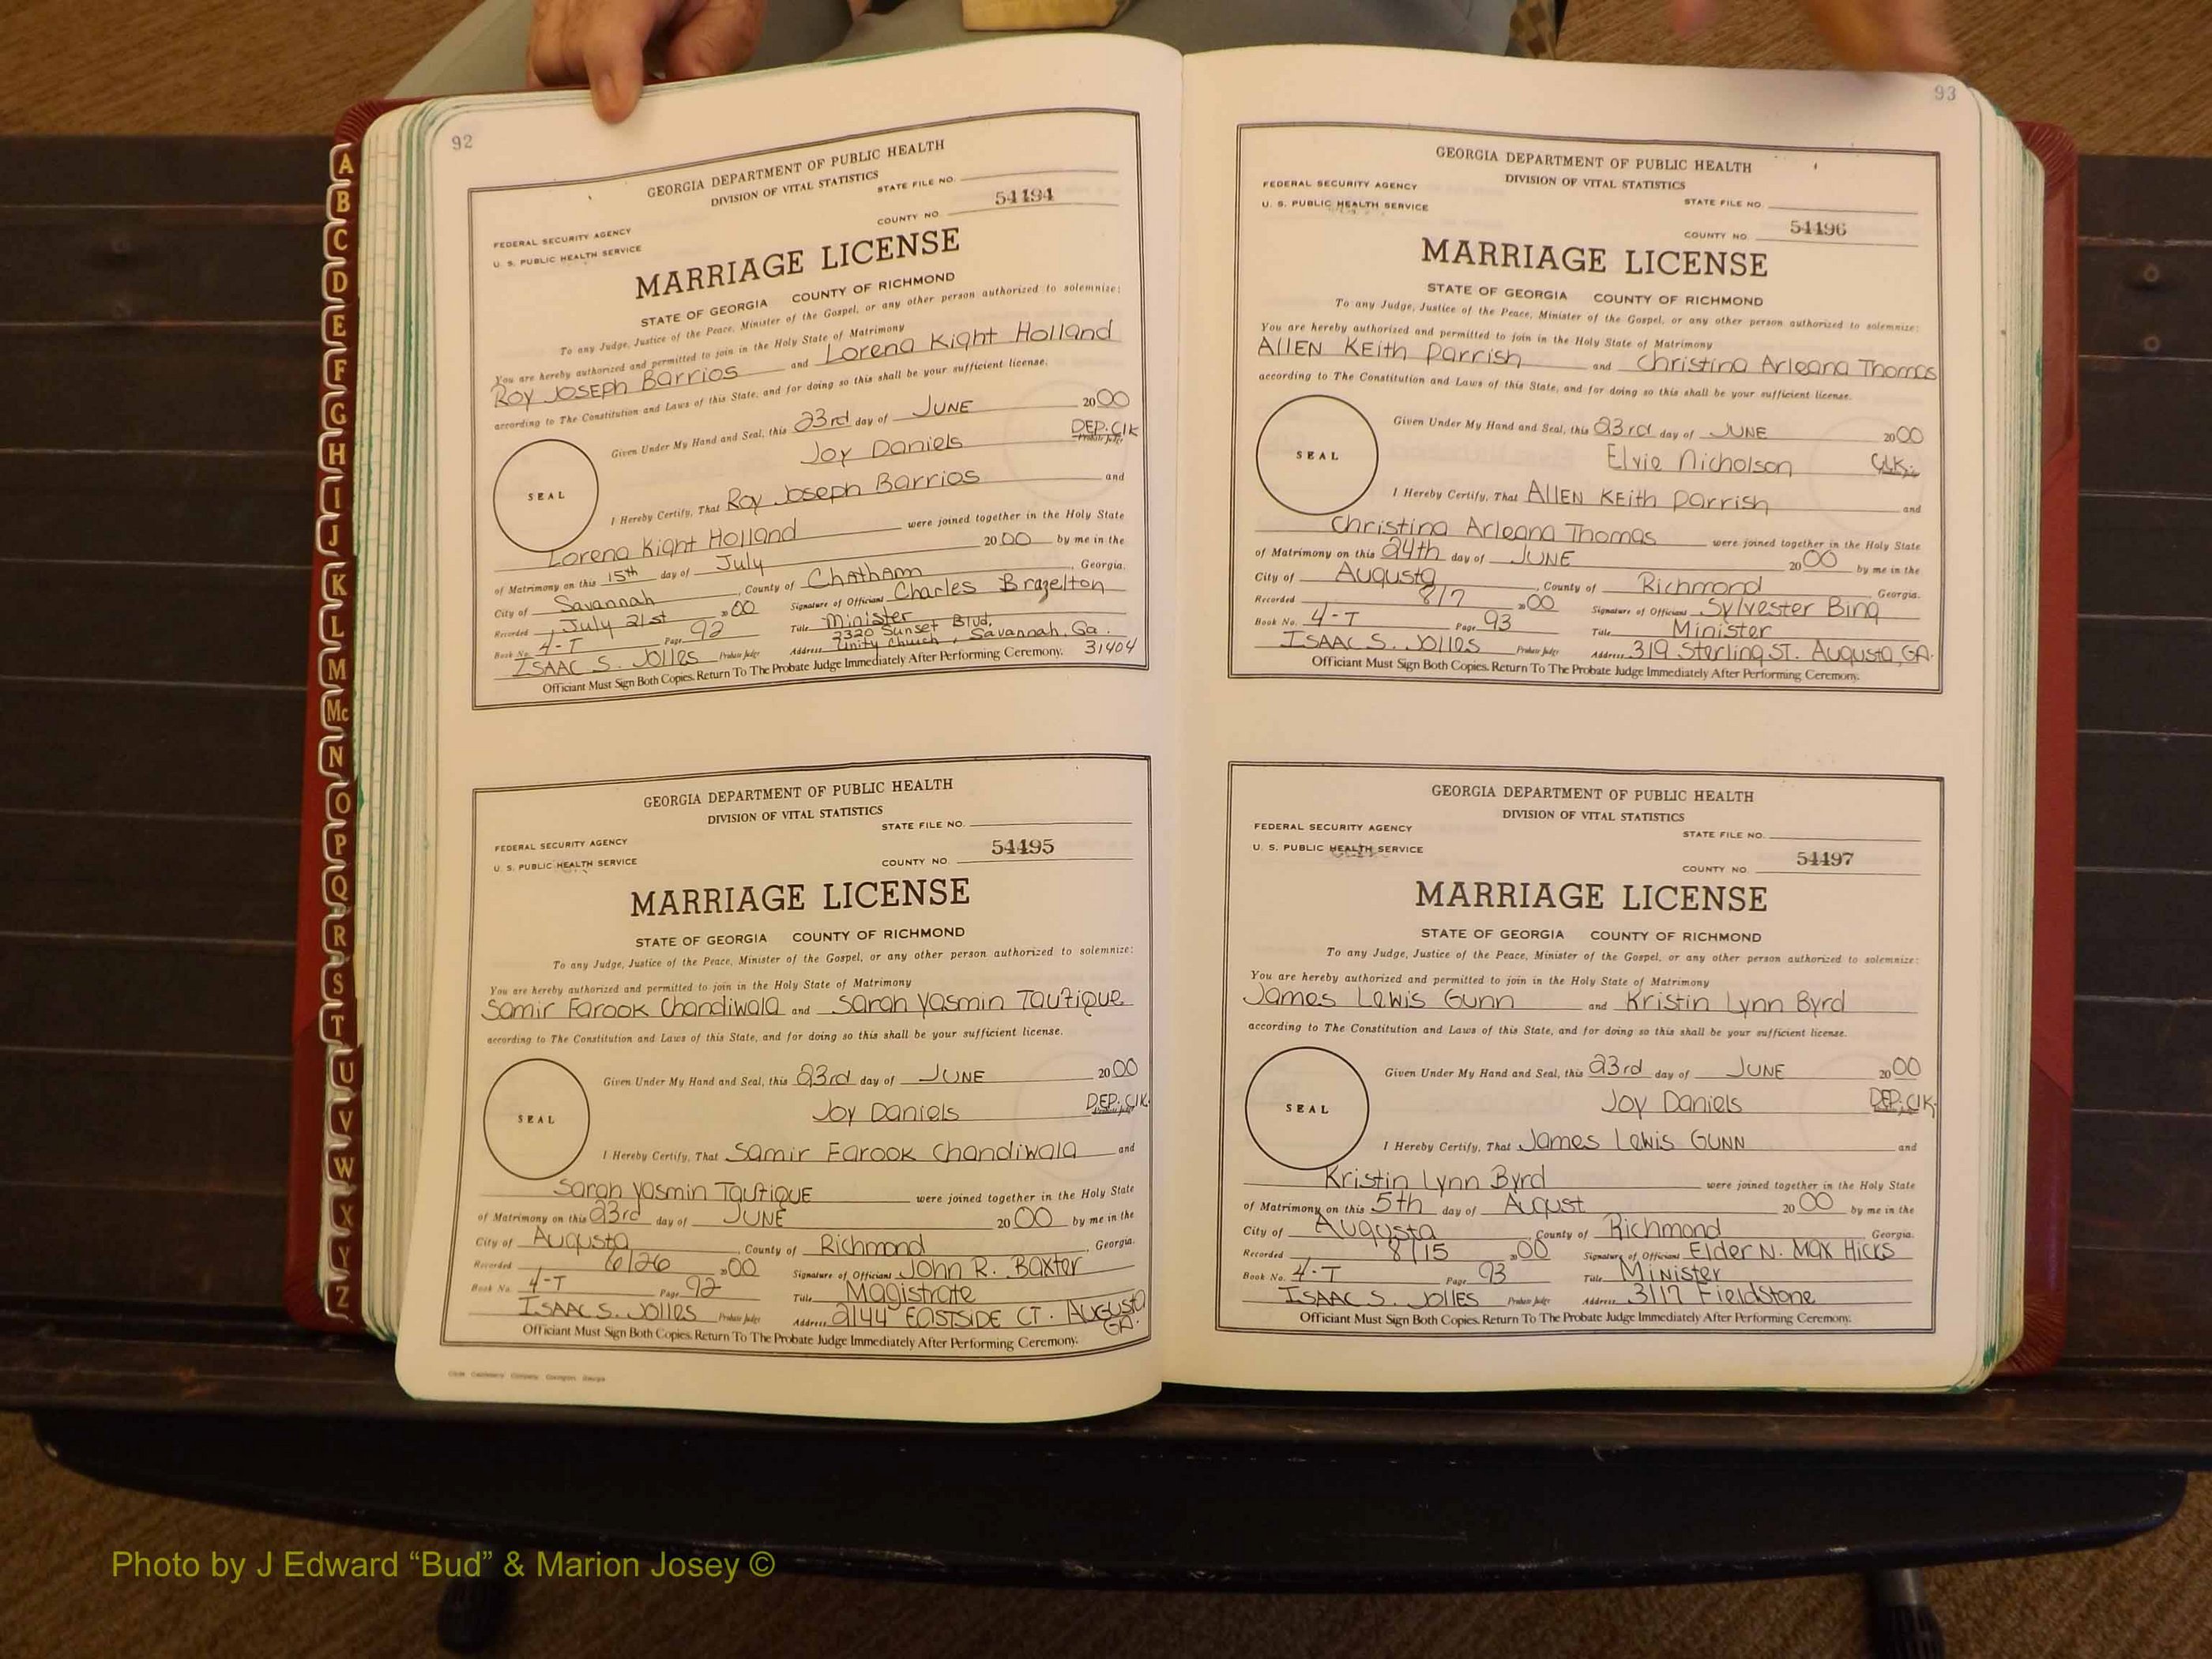 92
GEORGIA DEPARTMENT OF PUBLIC HEALTH
DIVISION OF VITAL STATISTICS
STATE FILE NO.
54494
COUNTY NO.
FEDERAL SECURITY AGENCY
U. S. PUBLIC HEALTH SERVICE
MARRIAGE LICENSE
STATE OF GEORGIA COUNTY OF RICHMOND
To any Judge, Justice of the Peace, Minister of the Gospel, or any other person authorized to solemnize:
You are hereby authorized and permitted to join in the Holy State of Matrimony
Roy Joseph Barrios and Lorena Kight Holland
according to The Constitution and Laws of this State, and for doing so this shall be your sufficient license.
Given Under My Hand and Seal, this 23rd day of JUNE 2000
Joy Daniels DEP. Clk
Probate Judge
SEAL
I Hereby Certify, That Roy Joseph Barrios and
Lorena Kight Holland were joined together in the Holy State
of Matrimony on this 15th day of July 20 00 by me in the
City of Savannah, County of Chatham, Georgia.
Recorded July 21st 2000 Signature of Officiant Charles Brazelton
Book No. 4-T Page 92 Title Minister
2320 Sunset Blvd,
ISAAC S. Jolles Probate Judge Address Unity Church, Savannah, Ga. 31404
Officiant Must Sign Both Copies. Return To The Probate Judge Immediately After Performing Ceremony.
GEORGIA DEPARTMENT OF PUBLIC HEALTH
DIVISION OF VITAL STATISTICS
STATE FILE NO.
FEDERAL SECURITY AGENCY
54495
U. S. PUBLIC HEALTH SERVICE COUNTY NO.
MARRIAGE LICENSE
STATE OF GEORGIA COUNTY OF RICHMOND
To any Judge, Justice of the Peace, Minister of the Gospel, or any other person authorized to solemnize:
You are hereby authorized and permitted to join in the Holy State of Matrimony
Samir Farook Chandiwala and Sarah Yasmin Taufique
according to The Constitution and Laws of this State, and for doing so this shall be your sufficient license.
Given Under My Hand and Seal, this 23rd day of JUNE 2000
Joy Daniels DEP. Clk.
SEAL
I Hereby Certify, That Samir Farook Chandiwala and
Sarah Yasmin TaufiQUE were joined together in the Holy State
of Matrimony on this 23rd day of JUNE 20 00 by me in the
City of Augusta, County of Richmond, Georgia.
Recorded 6/26 2000 Signature of Officiant John R. Baxter
Book No. 4-T Page 92 Title Magistrate
ISAAC S. Jolles Probate Judge Address 2144 EASTSIDE CT. AUGUSTA GA.
Officiant Must Sign Both Copies. Return To The Probate Judge Immediately After Performing Ceremony.
93
GEORGIA DEPARTMENT OF PUBLIC HEALTH
DIVISION OF VITAL STATISTICS
FEDERAL SECURITY AGENCY
U. S. PUBLIC HEALTH SERVICE
STATE FILE NO.
54496
COUNTY NO.
MARRIAGE LICENSE
STATE OF GEORGIA COUNTY OF RICHMOND
To any Judge, Justice of the Peace, Minister of the Gospel, or any other person authorized to solemnize:
You are hereby authorized and permitted to join in the Holy State of Matrimony
AllEN KEith Parrish and Christina Arleana Thomas
according to The Constitution and Laws of this State, and for doing so this shall be your sufficient license.
Given Under My Hand and Seal, this 23rd day of JUNE 2000
Elvie Nicholson CLK.
SEAL
I Hereby Certify, That AllEN KEith Parrish and
Christina Arleana Thomas were joined together in the Holy State
of Matrimony on this 24th day of JUNE 20 00 by me in the
City of Augusta, County of Richmond, Georgia.
Recorded 8/7 2000 Signature of Officiant Sylvester Bing
Book No. 4-T Page 93 Title Minister
ISAAC S. Jolles Probate Judge Address 319 Sterling ST. Augusta, GA.
Officiant Must Sign Both Copies. Return To The Probate Judge Immediately After Performing Ceremony.
GEORGIA DEPARTMENT OF PUBLIC HEALTH
DIVISION OF VITAL STATISTICS
FEDERAL SECURITY AGENCY
STATE FILE NO.
U. S. PUBLIC HEALTH SERVICE
54497
COUNTY NO.
MARRIAGE LICENSE
STATE OF GEORGIA COUNTY OF RICHMOND
To any Judge, Justice of the Peace, Minister of the Gospel, or any other person authorized to solemnize:
You are hereby authorized and permitted to join in the Holy State of Matrimony
James Lewis Gunn and Kristin Lynn Byrd
according to The Constitution and Laws of this State, and for doing so this shall be your sufficient license.
Given Under My Hand and Seal, this 23rd day of JUNE 2000
Joy Daniels DEP. Clk.
SEAL
I Hereby Certify, That James Lewis GUNN and
Kristin Lynn Byrd were joined together in the Holy State
of Matrimony on this 5th day of August 20 00 by me in the
City of Augusta, County of Richmond, Georgia.
Recorded 8/15 2000 Signature of Officiant Elder N. Max Hicks
Book No. 4-T Page 93 Title Minister
ISAAC S. JOLLES Probate Judge Address 3117 Fieldstone
Officiant Must Sign Both Copies. Return To The Probate Judge Immediately After Performing Ceremony.
A
B
C
D
E
F
G
H
I
J
K
L
M
Mc
N
O
P
Q
R
S
T
U
V
W
X
Y
Z
Photo by J Edward “Bud” & Marion Josey ©